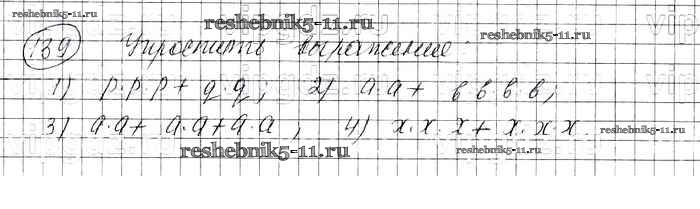 reshebnik5-11.ru
reshebnik5-11.ru
139 Упростить выражение:
1) p·p·p + q·q; 2) a·a + b·b·b·b;
3) a·a + a·a + a·a; 4) x·x·x + x·x·x.
reshebnik5-11.ru
reshebnik5-11.ru
reshebnik5-11.ru